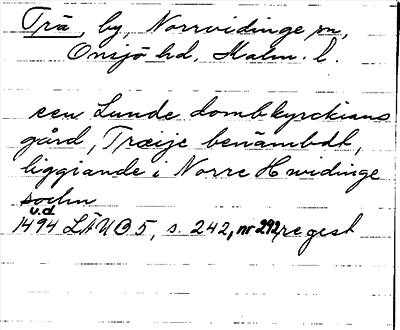 Trä, by, Norrvidinge sn,
Onsjö hd, Malm. l.
een Lunde dombkyrckians
gård, Træije benämbdt,
liggiande i Norre Hwidinge
sochn
u.d.
1494 LÄUB 5, s. 242, nr 292 regest